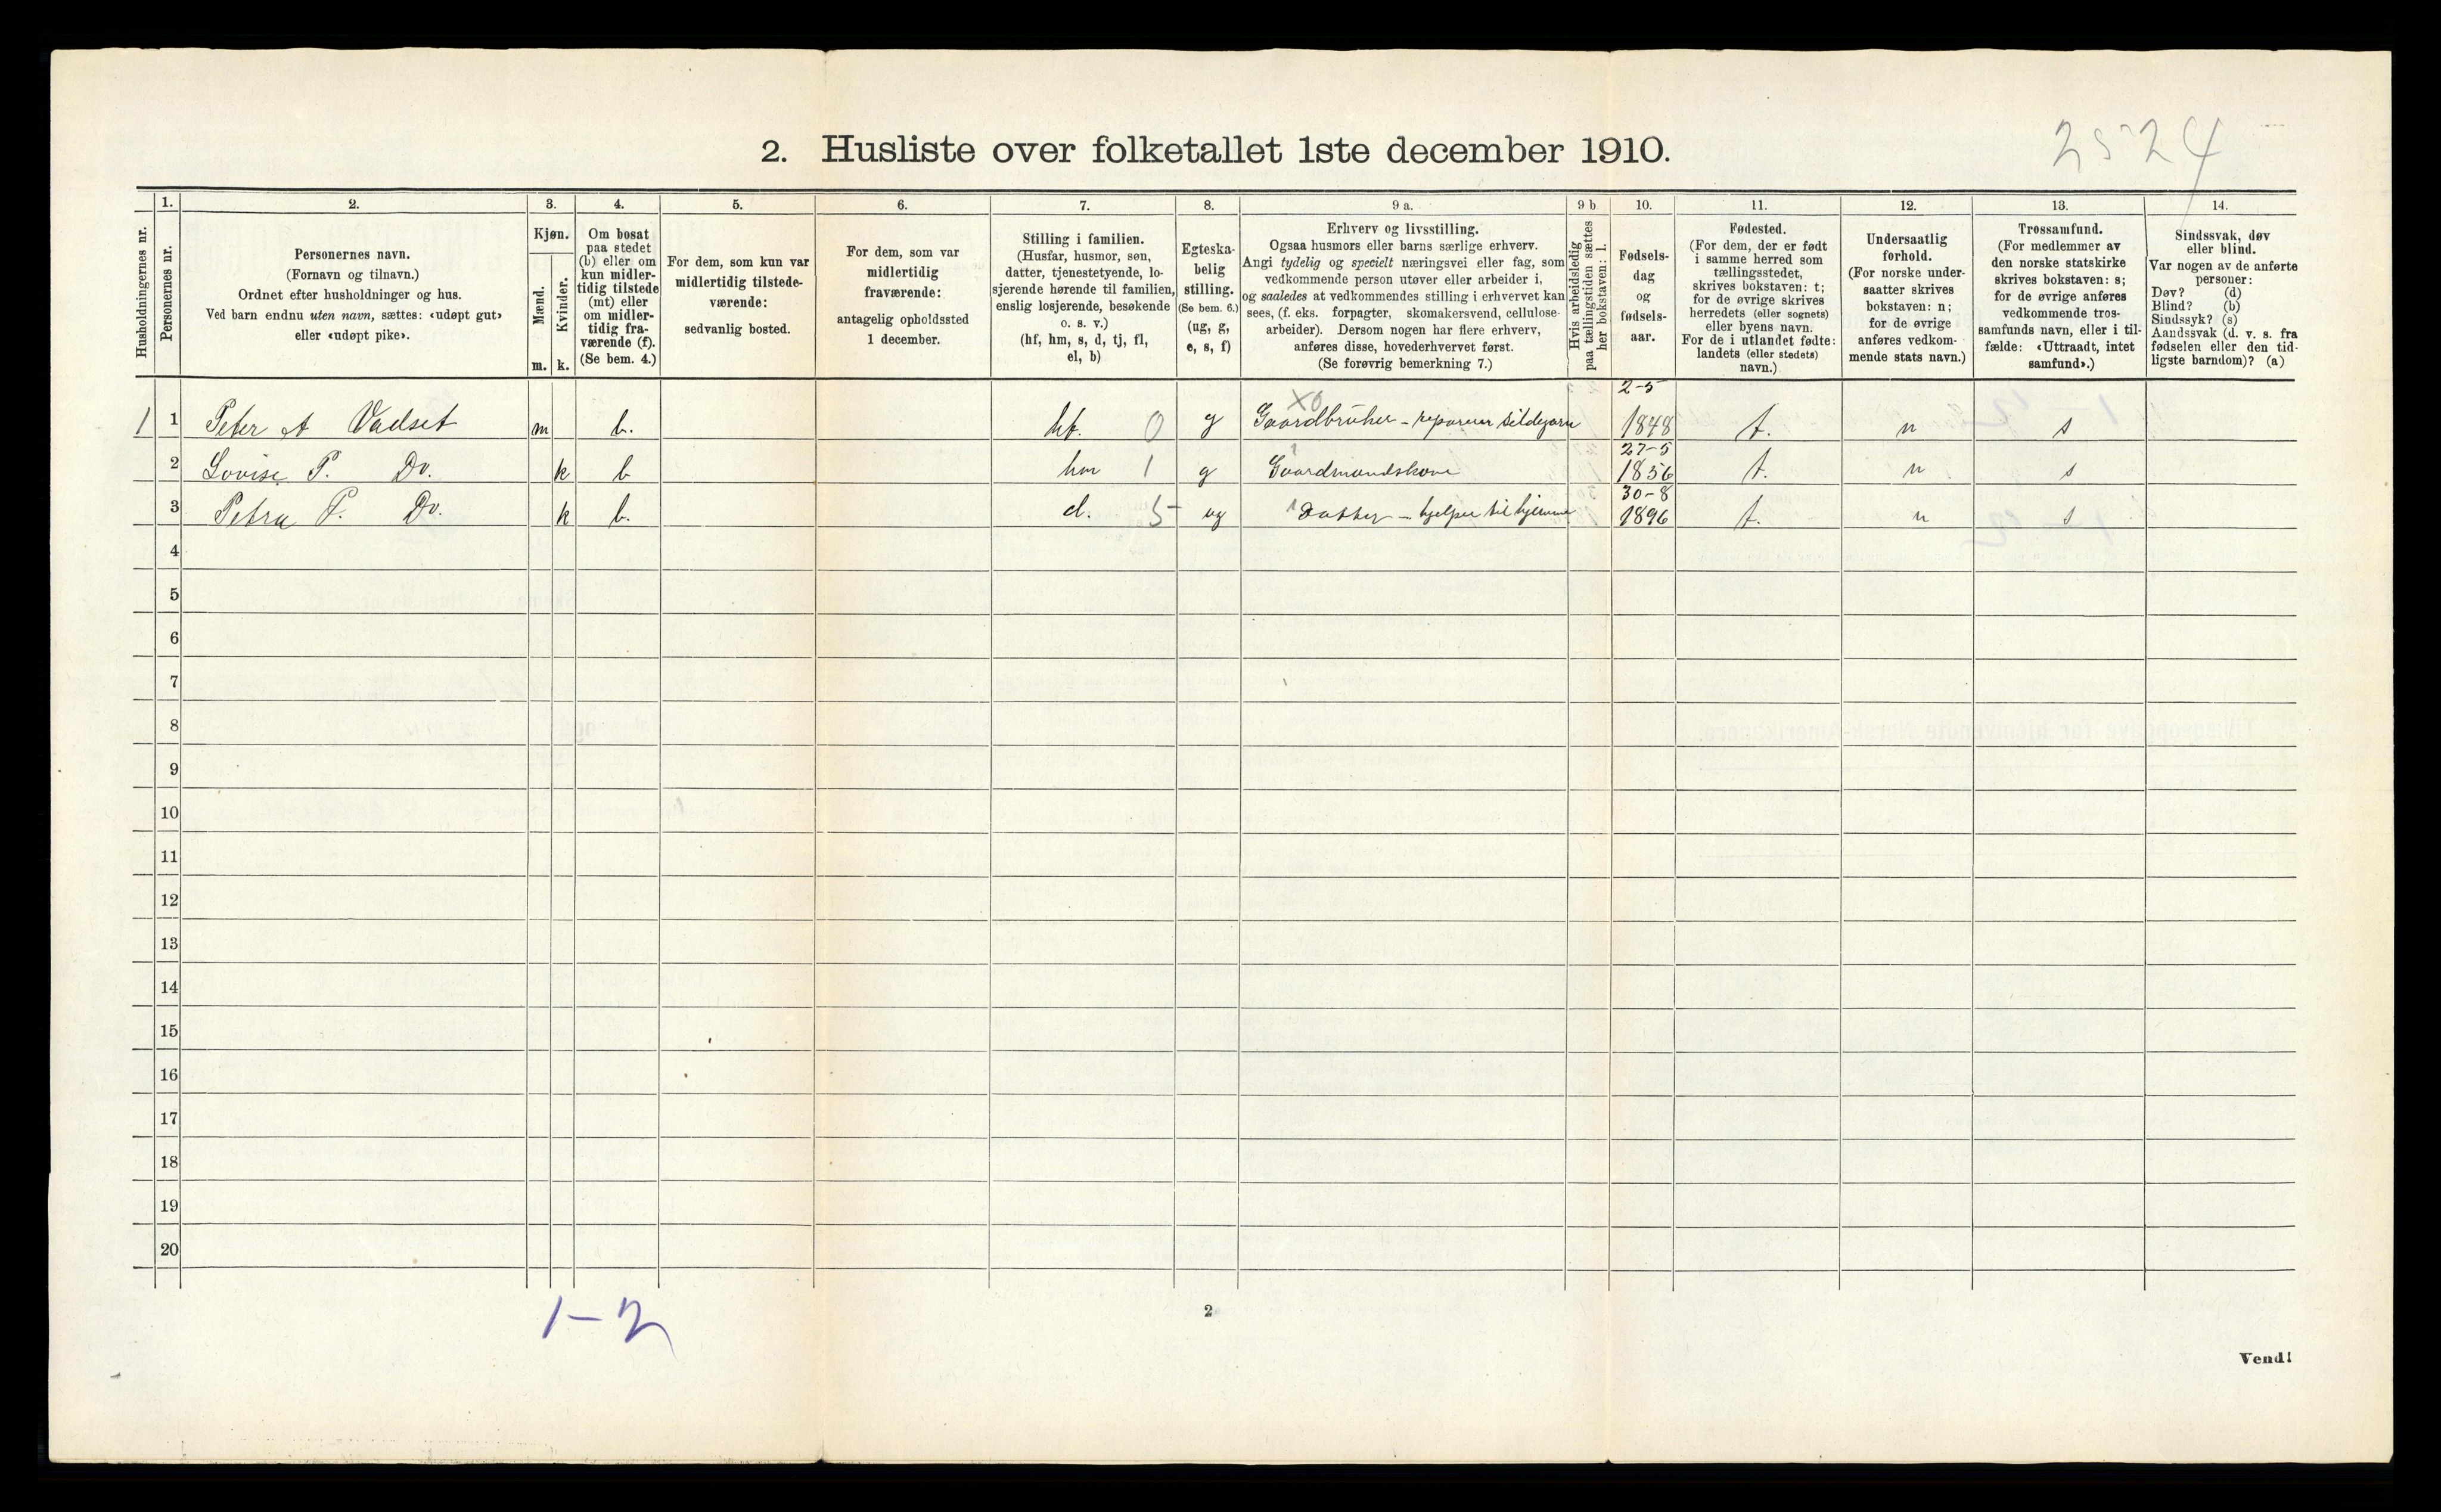 2524
2. Husliste over folketallet 1ste december 1910.
1. 2. 3. 4. 5. 6. 7. 8. 9 a. 9 b 10. 11. 12. 13. 14.
Husholdningernes nr.
Personernes nr.
Personernes navn.
(Fornavn og tilnavn.)
Ordnet efter husholdninger og hus.
Ved barn endnu uten navn, sættes: «udøpt gut»
eller «udøpt pike».
Kjøn.
Mænd.
Kvinder.
m. k.
Om bosat
paa stedet
(b) eller om
kun midler-
tidig tilstede
(mt) eller
om midler-
tidig fra-
værende (f).
(Se bem. 4.)
For dem, som kun var
midlertidig tilstede-
værende:
sedvanlig bosted.
For dem, som var
midlertidig
fraværende:
antagelig opholdssted
1 december.
Stilling i familien.
(Husfar, husmor, søn,
datter, tjenestetyende, lo-
sjerende hørende til familien,
enslig losjerende, besøkende
o. s. v.)
(hf, hm, s, d, tj, fl,
el, b)
Egteska-
belig
stilling.
(Se bem. 6.)
(ug, g,
e, s, f)
Erhverv og livsstilling.
Ogsaa husmors eller barns særlige erhverv.
Angi tydelig og specielt næringsvei eller fag, som
vedkommende person utøver eller arbeider i,
og saaledes at vedkommendes stilling i erhvervet kan
sees, (f. eks. forpagter, skomakersvend, cellulose-
arbeider). Dersom nogen har flere erhverv,
anføres disse, hovederhvervet først.
(Se forøvrig bemerkning 7.)
Hvis arbeidsledig
paa tællingstiden sættes
her bokstaven: l.
Fødsels-
dag
og
fødsels-
aar.
Fødested.
(For dem, der er født
i samme herred som
tællingsstedet,
skrives bokstaven: t;
for de øvrige skrives
herredets (eller sognets)
eller byens navn.
For de i utlandet fødte:
landets (eller stedets)
navn.)
Undersaatlig
forhold.
(For norske under-
saatter skrives
bokstaven: n;
for de øvrige
anføres vedkom-
mende stats navn.)
Trossamfund.
(For medlemmer av
den norske statskirke
skrives bokstaven: s;
for de øvrige anføres
vedkommende tros-
samfunds navn, eller i til-
fælde: «Uttraadt, intet
samfund».)
Sindssvak, døv
eller blind.
Var nogen av de anførte
personer:
Døv? (d)
Blind? (b)
Sindssyk? (s)
Aandssvak (d. v. s. fra
fødselen eller den tid-
ligste barndom)? (a)
X0 2-5
1 1 Peter A Vadset m b. hf. 0 g Gaardbruker - reparerer sildegarn 1848 t. n s
27-5
2 Lovise P. Do. k b hm 1 g Gaardmandskone 1856 t. n s
30-8
3 Petra P. Do. k b. d. 5 ug Datter - hjelper til hjemme 1896 t. n s
4
5
6
7
8
9
10
11
12
13
14
15
16
17
18
19
20
1-2
2
Vend!